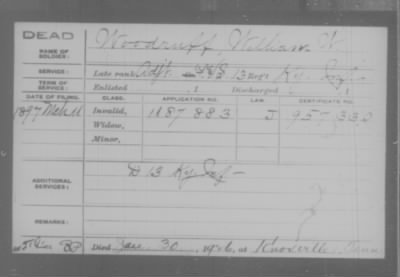 DEAD
NAME OF SOLDIER: Woodruff, William W.
SERVICE: Late rank, Adjt. 13 Regt. Ky. Inf
TERM OF SERVICE: Enlisted , 1 Discharged , 1
DATE OF FILING. CLASS. APPLICATION NO. LAW. CERTIFICATE NO.
1897 Mch 11 Invalid, 1187883 J 957,332
Widow,
Minor,
ADDITIONAL SERVICES: D 13 Ky. Inf
REMARKS:
Died 30, 1926, at Knoxville, Tenn